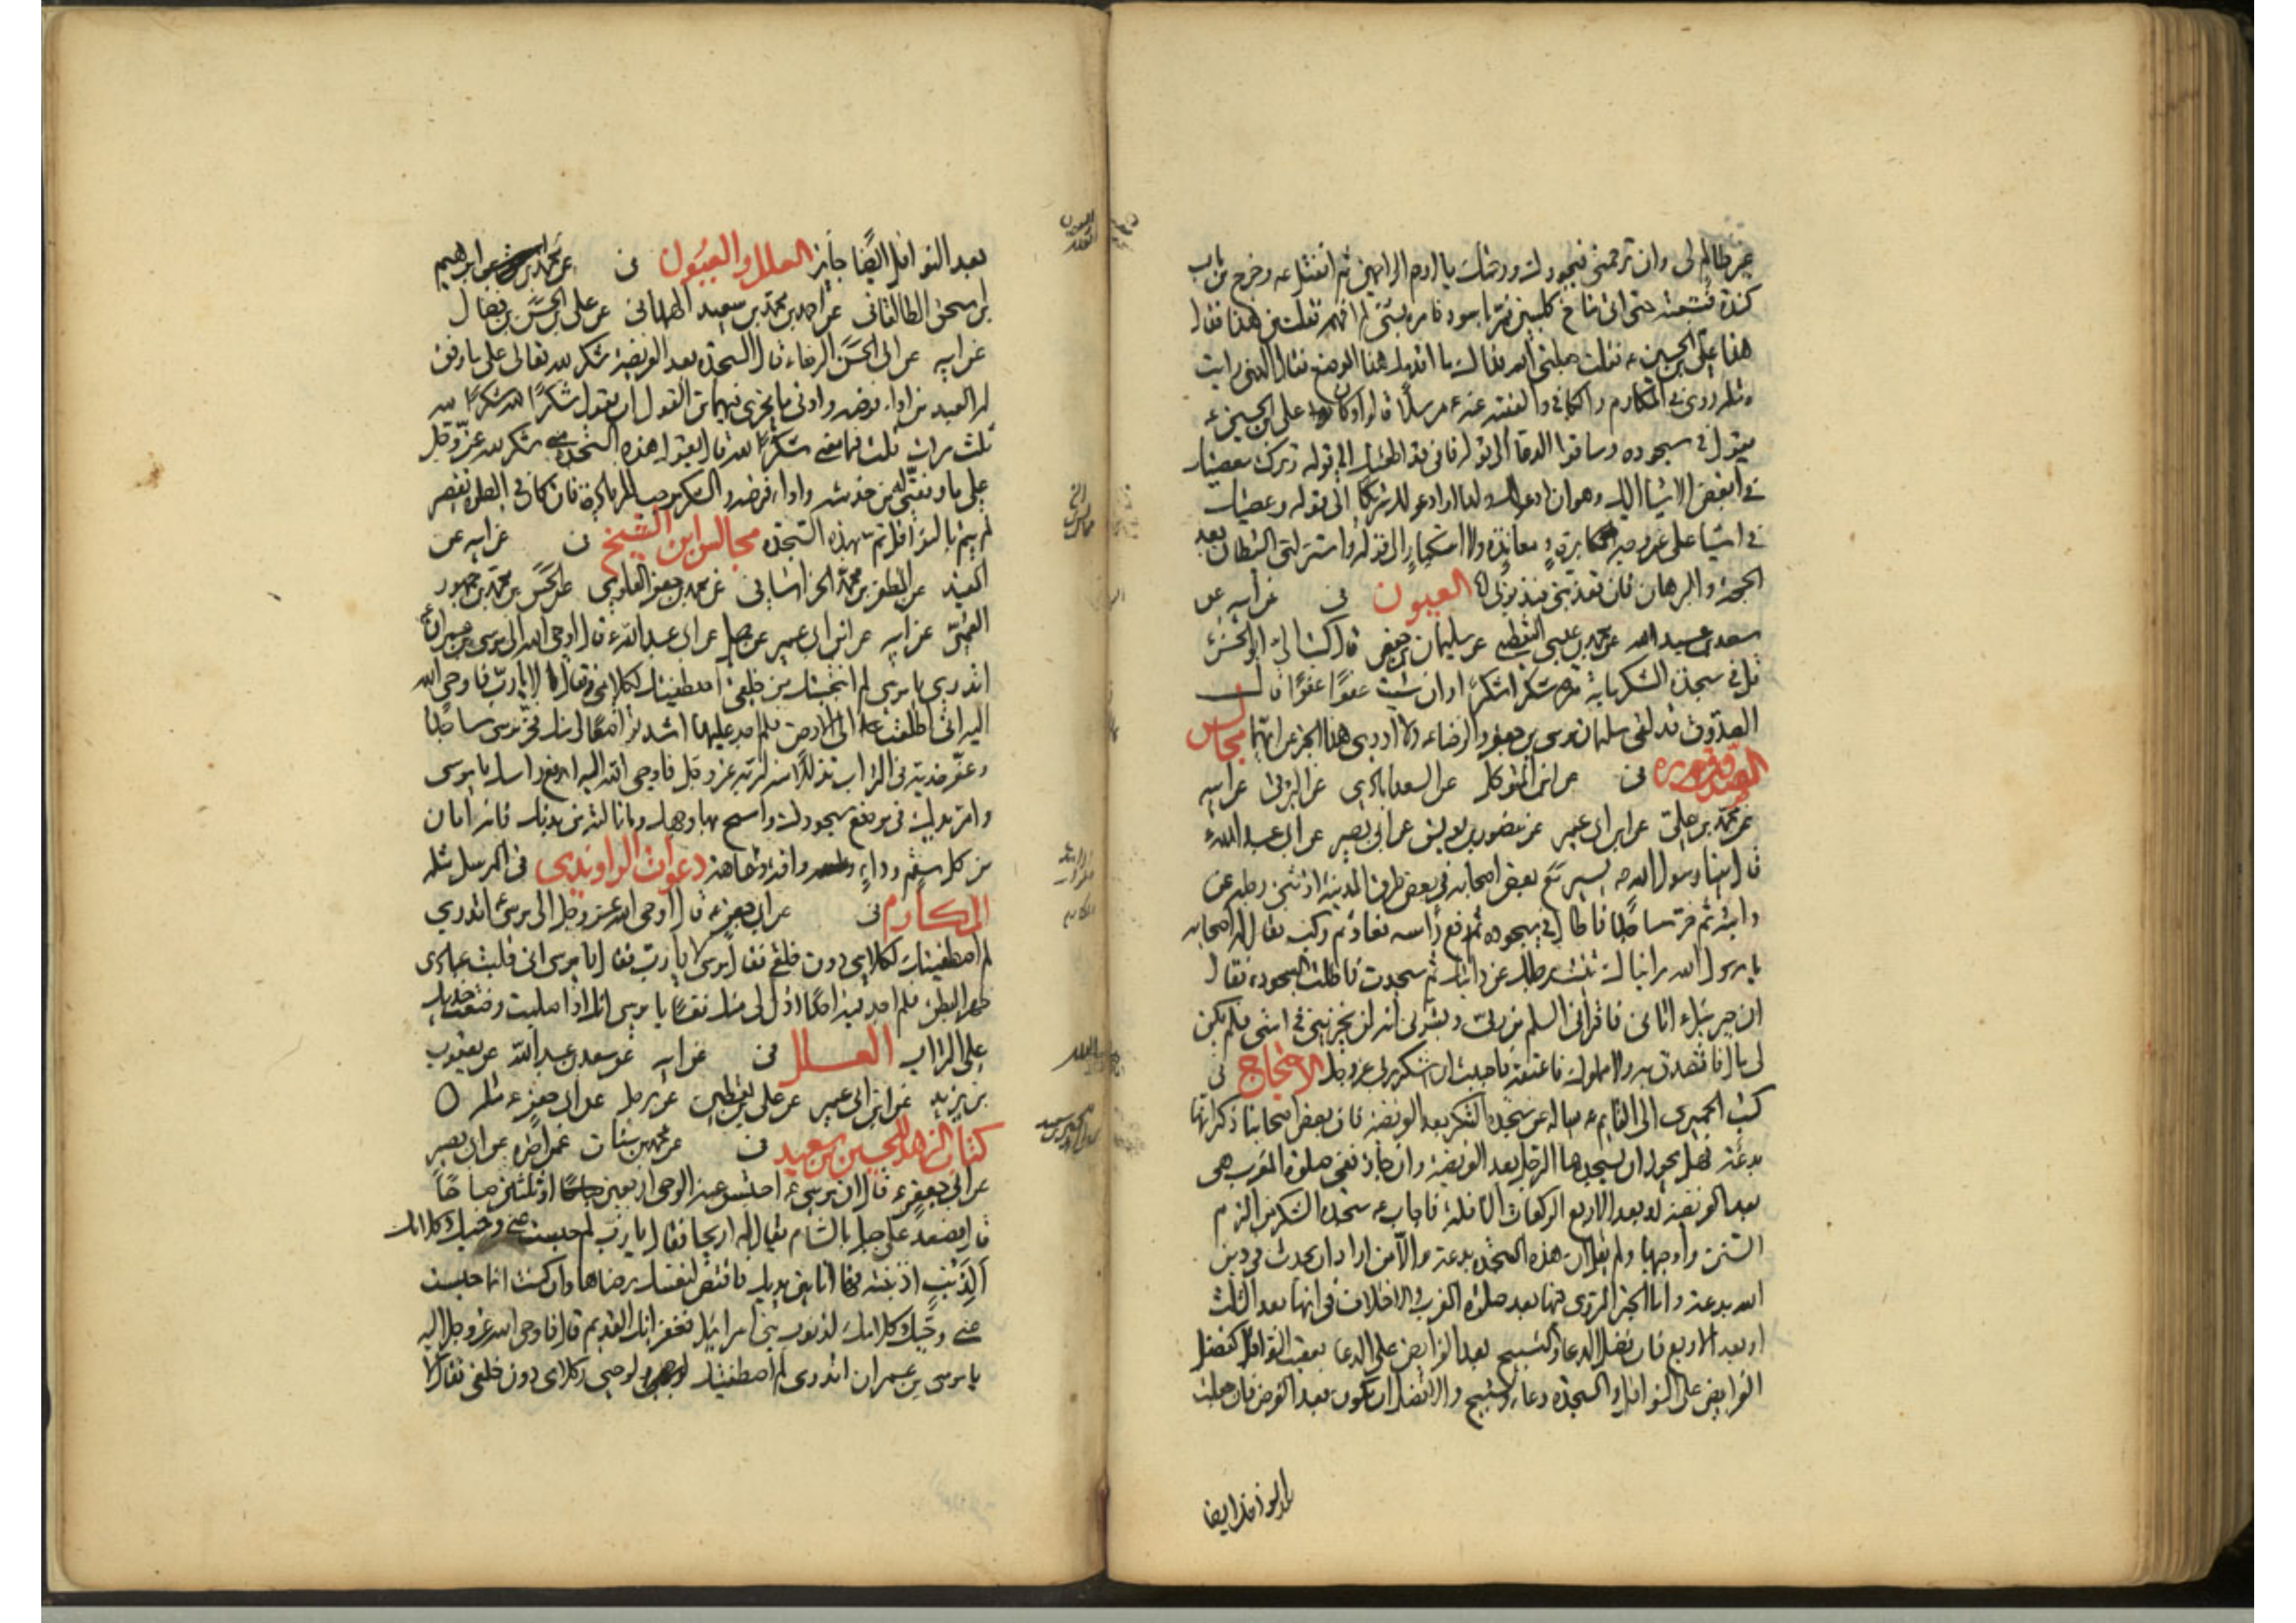 غير ظالم لى وان ترحمنى فبجودك ورحمتك يا ارحم الراحمين ثم انفتل ع وخرج من باب
كندة فتبعته حتى اتى مناخ كلبيين فمر باسود فامره بشئ لم افهمه فقلت من هذا فقال
هذا على بن الحسين ع فقلت جعلنى الله فداك ما اقدمك هذا الموضع فقال الذى رايت
وروى فى المكارم والكافى والفقيه عنه ع مرسلا قال وكان على بن الحسين ع
يقول فى سجوده وساقوا الدعا الى قوله فانى قد اطعتك الى قوله وتركت معصيتك
فى ابغض الاشيا اليك وهو ان ادعو لك ولدا او ادعو لك شريكا الى قوله وعصيتك
فى اشيا على غير وجه مكابرة ولا معاندة ولا استكبار الى قوله واستزلنى الشيطان بعد
الحجة والبرهان فان تعذبنى فبذنوبى العيون فى عن ابيه عن
سعد بن عبد الله عن محمد بن عيسى اليقطينى عن سليمان بن حفص قال كتب الىّ ابو الحسن ع
قل فى سجدة الشكر ماية مرة شكرا شكرا وان شيت عفوا عفوا قال
الصدوق قد لقى سليمان موسى بن جعفر والرضا ع ولا ادرى هذا الخبر عن ايهما مجالس
الصدوق فى عن ابن المتوكل عن السعدابادى عن البرقى عن ابيه
عن محمد بن على عن ابن ابى عمير عن منصور بن يونس عن ابى بصير عن ابى عبد الله ع
قال بينا رسول الله ص يسير مع بعض اصحابه فى بعض طرق المدينة اذ ثنى رجله عن
دابته ثم خر ساجدا فاطال فى سجوده ثم رفع راسه فعاد ثم ركب فقال له اصحابه
يا رسول الله رايناك ثنيت رجلك عن دابتك ثم سجدت فاطلت السجود فقال
ان جبرئيل ع اتانى فاقرانى السلم من ربى وبشرنى انه لن يخزينى فى امتى فلم يكن
لى مال فاتصدق به ولا مملوك فاعتقه فاحببت ان اشكر ربى عز وجل الاحتجاج فى
كتب الحميرى الى القايم ع يساله عن سجدة الشكر بعد الفريضة فان بعض اصحابنا ذكر انها
بدعة فهل يجوز ان يسجدها الرجل بعد الفريضة وان جاز ففى صلوة المغرب هى
بعد الفريضة او بعد الاربع الركعات النافلة فاجاب ع سجدة الشكر من الزم
السنن واوجبها ولم يقل ان هذه السجدة بدعة الا من اراد ان يحدث فى دين
الله بدعة واما الخبر المروى فيها بعد صلوة المغرب والاختلاف فى انها بعد الثلث
او بعد الاربع فان فضل الدعا والتسبيح بعد الفرايض على الدعا بعقيب النوافل كفضل
الفرايض على النوافل والسجدة دعاء وتسبيح والافضل ان يكون بعد الفرض فان جعلت
بعد النوافل ايضا
بعد النوافل ايضًا جايز العلل والعيون فى عن محمد بن ابراهيم
بن اسحق الطالقانى عن احمد بن محمد بن سعيد الهمدانى عن على بن الحسن بن فضال
عن ابيه عن ابى الحسن الرضا ع قال السجدة بعد الفريضة شكر لله تعالى على ما وفق
له العبد من اداء فرضه وادنى ما يجزى فيها من القول ان يقول شكرًا لله شكرًا لله
ثلث مرات قلت فما معنى شكرًا لله قال يقول هذه السجدة منى شكر لله عز وجل
على ما وفقنى له من خدمته واداء فرضه والشكر موجب للزيادة فان كان فى الصلوة تقصير
لم يتم بالنوافل تم بهذه السجدة مجالس ابن الشيخ فى عن ابيه عن
المفيد عن المظفر بن محمد الخراسانى عن محمد بن جعفر العلوى عن الحسن بن محمد بن جمهور
العمى عن ابيه عن ابن ابى عمير عن جميل عن ابى عبد الله ع قال اوحى الله الى موسى بن عمران ع
اتدرى يا موسى لم انتجبتك من خلقى واصطفيتك لكلامى فقال لا يا رب فاوحى الله
اليه انى اطلعت الى الارض فلم اجد عليها اشد تواضعًا لى منك فخر موسى ساجدًا
وعفر خديه فى التراب تذللًا منه لربه عز وجل فاوحى الله اليه ارفع راسك يا موسى
وامر يدك فى موضع سجودك وامسح بها وجهك وما نالته من بدنك فانه امان
من كل سقم وداء وافة وعاهة دعوات الراوندى فى المرسل مثله
المكارم فى عن ابى جعفر ع قال اوحى الله عز وجل الى موسى ع اتدرى
لم اصطفيتك لكلامى دون خلقى فقال موسى لا يا رب فقال يا موسى انى قلبت عبادى
ظهرا لبطن فلم اجد فيهم احدًا اذل لى منك نفسًا يا موسى انك اذا صليت وضعت خديك
على التراب العلل فى عن ابيه عن سعد بن عبد الله عن يعقوب
بن يزيد عن ابن ابى عمير عن على بن يقطين عن رجل عن ابى جعفر ع مثله ○
كتاب الزهد للحسين بن سعيد فى عن محمد بن سنان عمن اخبره عن ابى بصير
عن ابى جعفر ع قال ان موسى ع احتبس عنه الوحى اربعين او ثلثين صباحًا
قال فصعد على جبل بالشام يقال له اريحا فقال يا رب لم حبست عنى وحيك وكلامك
الذنب اذنبته فها انا بين يديك فاقتص لنفسك رضاها وان كنت انما حبست
عنى وحيك وكلامك لذنوب بنى اسرائيل فعفوك القديم قال فاوحى الله عز وجل اليه
يا موسى بن عمران اتدرى لم اصطفيتك لوحيى وكلامى دون خلقى فقال لا